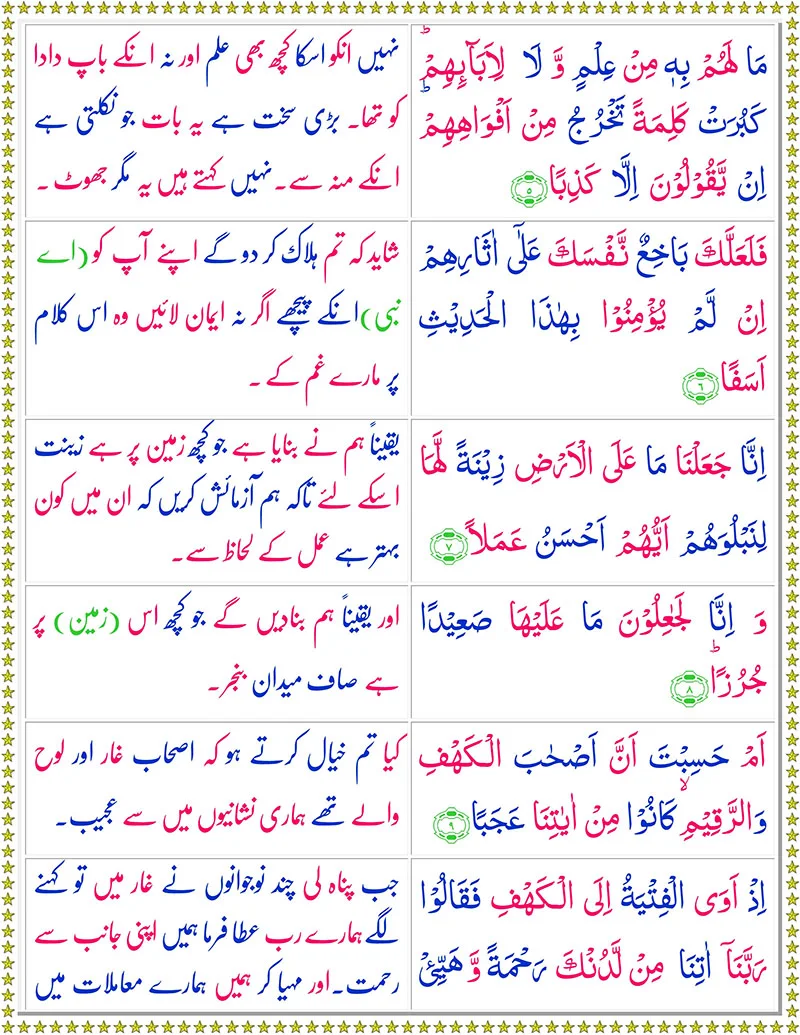 مَا لَهُمْ بِهٖ مِنْ عِلْمٍ وَّ لَا لِاٰبَآىِٕهِمْ ؕ
كَبُرَتْ كَلِمَةً تَخْرُجُ مِنْ اَفْوَاهِهِمْ ؕ
اِنْ يَّقُوْلُوْنَ اِلَّا كَذِبًا ۵
نہیں انکو اسکا کچھ بھی علم اور نہ انکے باپ دادا
کو تھا۔ بڑی سخت ہے یہ بات جو نکلتی ہے
انکے منہ سے۔ نہیں کہتے ہیں یہ مگر جھوٹ ۔
فَلَعَلَّكَ بَاخِعٌ نَّفْسَكَ عَلٰۤى اٰثَارِهِمْ
اِنْ لَّمْ يُؤْمِنُوْا بِهٰذَا الْحَدِيْثِ
اَسَفًا ۶
شاید کہ تم ہلاک کر دو گے اپنے آپ کو (اے
نبی) انکے پیچھے اگر نہ ایمان لائیں وہ اس کلام
پر مارے غم کے ۔
اِنَّا جَعَلْنَا مَا عَلَى الْاَرْضِ زِيْنَةً لَّهَا
لِنَبْلُوَهُمْ اَيُّهُمْ اَحْسَنُ عَمَلًا ۷
یقیناً ہم نے بنایا ہے جو کچھ زمین پر ہے زینت
اسکے لئے تاکہ ہم آزمائش کریں کہ ان میں کون
بہتر ہے عمل کے لحاظ سے۔
وَ اِنَّا لَجٰعِلُوْنَ مَا عَلَيْهَا صَعِيْدًا
جُرُزًا ؕ ۸
اور یقیناً ہم بنادیں گے جو کچھ اس (زمین) پر
ہے صاف میدان بنجر۔
اَمْ حَسِبْتَ اَنَّ اَصْحٰبَ الْكَهْفِ
وَالرَّقِيْمِ ۙ كَانُوْا مِنْ اٰيٰتِنَا عَجَبًا ۹
کیا تم خیال کرتے ہو کہ اصحاب غار اور لوح
والے تھے ہماری نشانیوں میں سے عجیب۔
اِذْ اَوَى الْفِتْيَةُ اِلَى الْكَهْفِ فَقَالُوْا
رَبَّنَاۤ اٰتِنَا مِنْ لَّدُنْكَ رَحْمَةً وَّ هَيِّئْ
جب پناہ لی چند نوجوانوں نے غار میں تو کہنے
لگے ہمارے رب عطا فرما ہمیں اپنی جانب سے
رحمت۔ اور مہیا کر ہمیں ہمارے معاملات میں